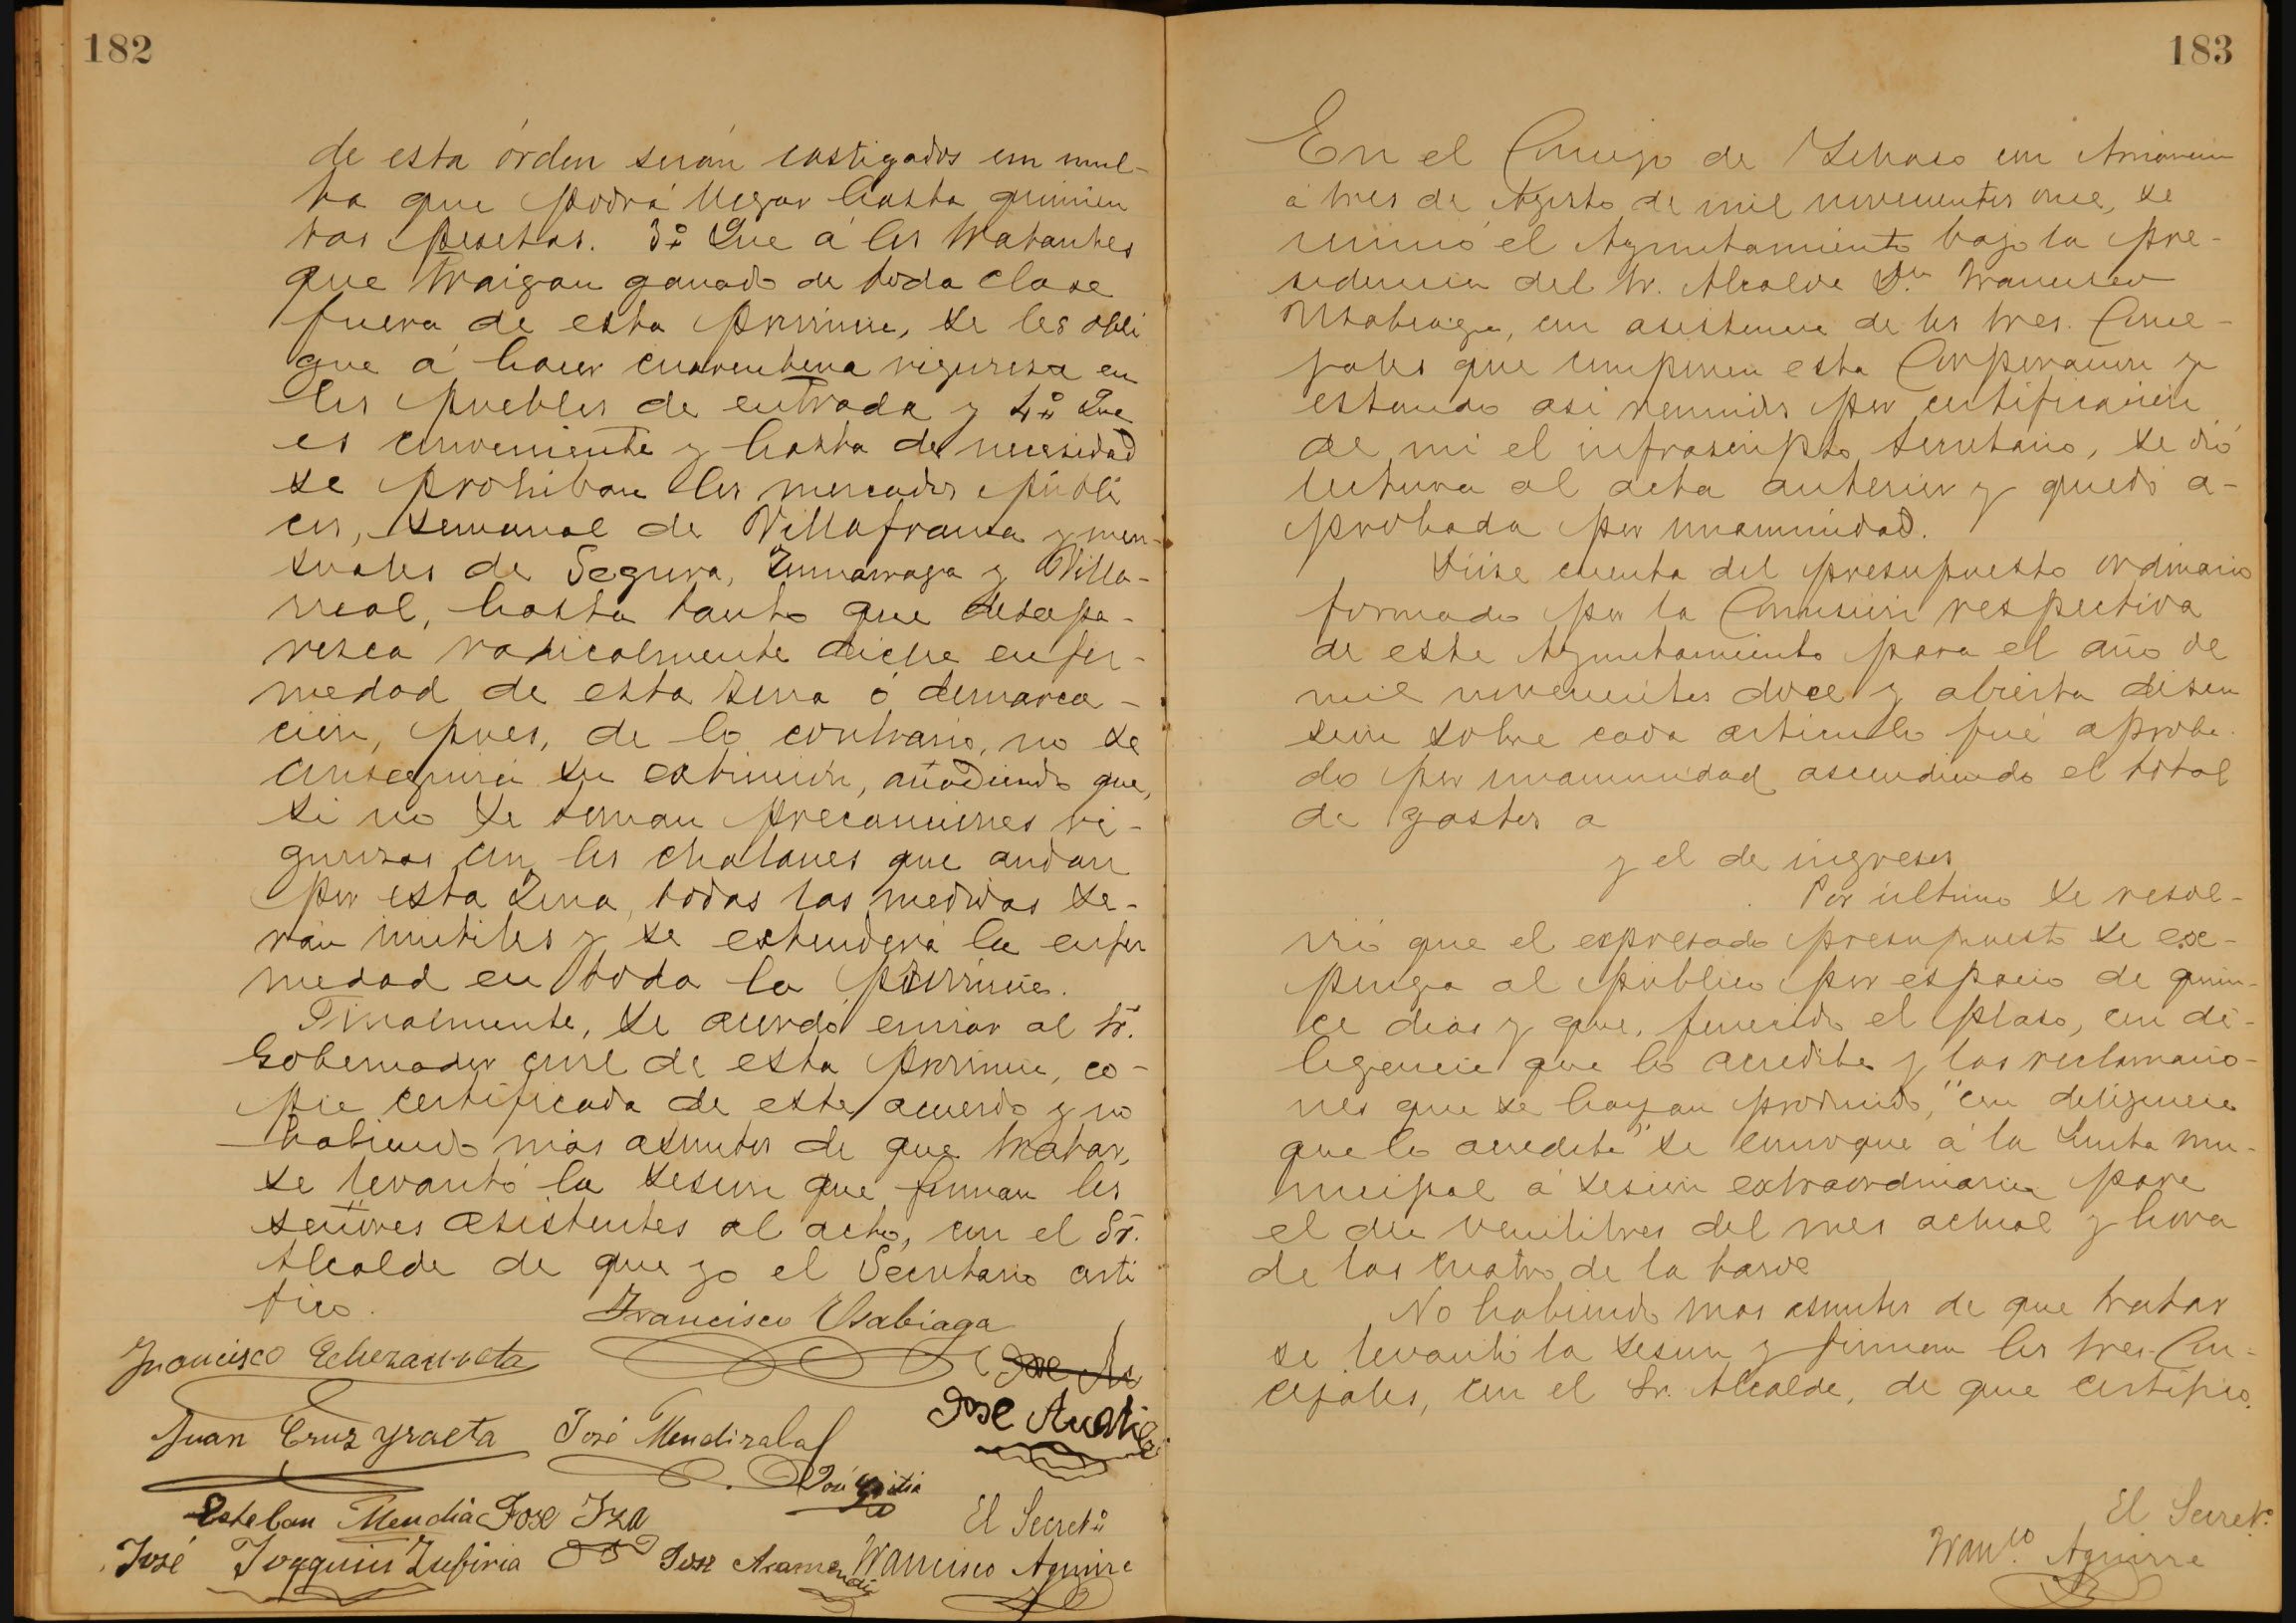 182
de esta órden serán castigados con mul-
ta que podrá llegar hasta quinien
tas pesetas. 3º Que á los tratantes
que traigan ganado de toda clase
fuera de esta provincia, se les obli
gue á hacer cuarentena rigurosa en
los pueblos de entrada y 4º Que
es conveniente y hasta de necesidad
se prohiban los mercados públi
cos, semanal de Villafranca y men-
suales de Segura, Zumarraga y Villa-
rreal, hasta tanto que desapa-
resca radicalmente dicha enfer-
medad de esta zona ó demarca-
ción, pues, de lo contrario, no se
conseguirá su extinción, añadiendo que,
si no se toman precauciones ri-
gurosas con los chalanes que andan
por esta zona, todas las medidas se-
rán inutiles y se extenderá la enfer
medad en toda la provincia.
Finalmente, se acordó enviar al Sr.
Gobernador civil de esta provincia, co-
pia certificada de este acuerdo y no
habiendo más asuntos de que tratar,
se levantó la sesión que firman los
señores asistentes al acto, con el Sr.
Alcalde de que yo el Secretario certi
fico.
Francisco Usabiaga
Francisco Echezarreta
José
José
Juan Cruz Yraeta José Mendizabal
José
Esteban Mendia José Iza
El Secretº
José Joaquin Zufiria José Aramendia Francisco Aguirre
183
En el Concejo de Ychaso con Arriaran
á tres de Agosto de mil novecientos once, se
reunió el Ayuntamiento bajo la pre-
sidencia del Sr. Alcalde Dn Francisco
Usabiaga, con asistencia de los tres. Conce-
jales que componen esta Corporación y
estando asi reunidos por certificación
de mi el infrascripto Secretario, se dió
lectura al acta anterior y quedó a-
probada por unanimidad.
Dióse cuenta del presupuesto ordinario
formado por la Comisión respectiva
de este Ayuntamiento para el año de
mil novecientos doce y abierta discu
sión sobre cada articulo fué aproba-
do por unanimidad ascendiendo el total
de gastos a
y el de ingresos
Por último se resol-
vió que el expresado presupuesto se ex-
ponga al público por espacio de quin-
ce dias y que, fenecido el plaso, con di-
ligencia que lo acredite y las reclamacio-
nes que se hayan producido, "con diligencia
que lo acredite" se convoque á la Junta mu-
nicipal á sesión extraordinaria para
el dia veintitres del mes actual y hora
de las cuatro de la tarde
No habiendo mas asuntos de que tratar
se levantó la sesión y firman los tres. Con-
cejales, con el Sr. Alcalde, de que certifico.
El Secretº
Francº. Aguirre